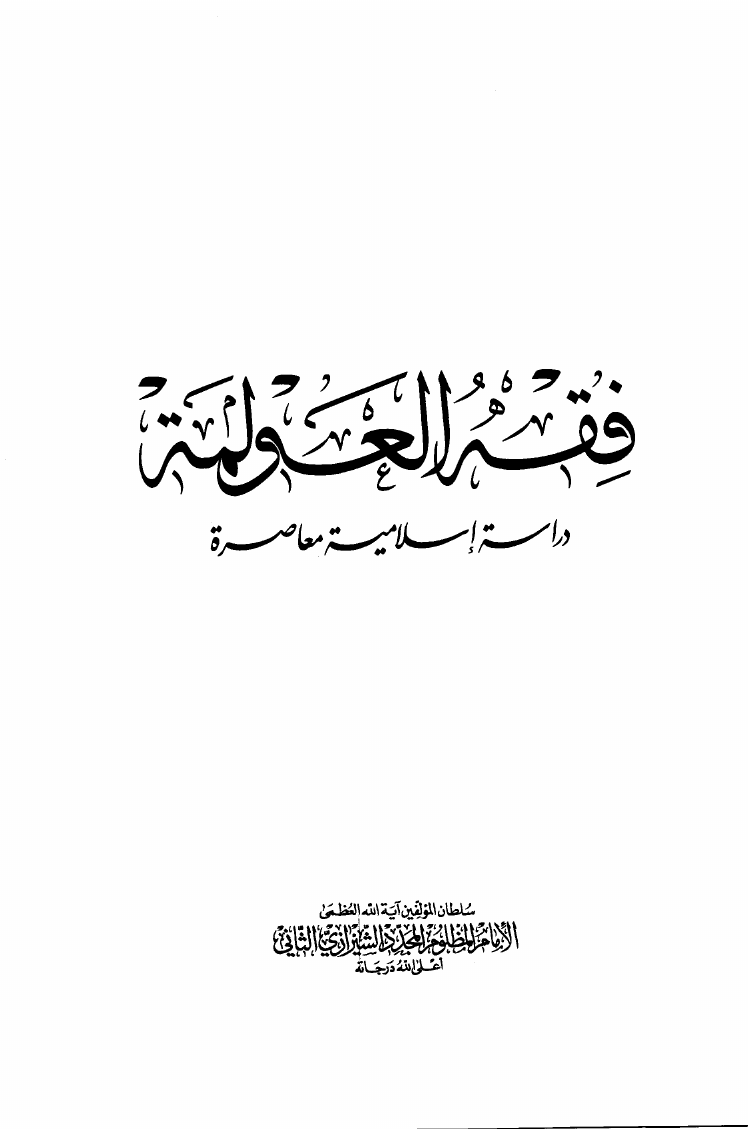 فِقْهُ العَولَمَة
دراسة إسلامية معاصرة
سُلطان المؤلِّفين آيَة الله العُظمىٰ
الإمام المظلوم المجدّد الشيرازيّ الثاني
أعلى الله دَرجاته